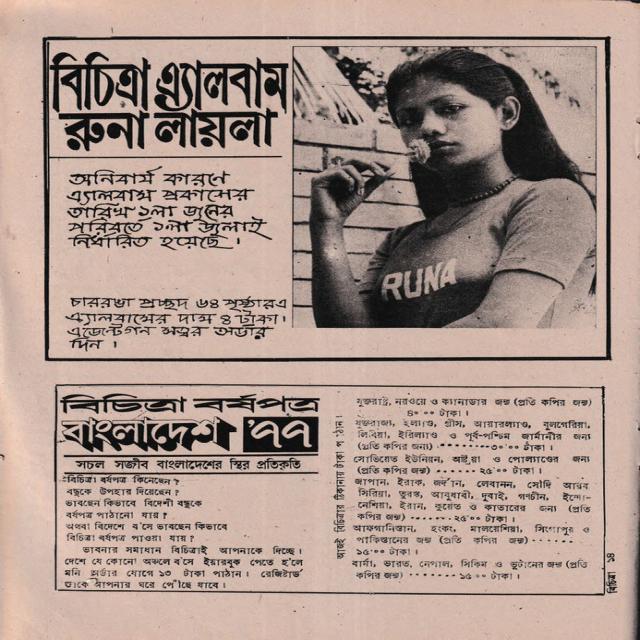 বিচিত্রা এ্যালবাম
রুনা লায়লা
অনিবার্য কারণে
এ্যালবাম প্রকাশের
তারিখ ১লা জুনের
পরিবর্তে ১লা জুলাই
নির্ধারিত হয়েছে।
চাররঙা প্রচ্ছদ ৬৪ পৃষ্ঠার এ
এ্যালবামের দাম ৪ টাকা।
এজেন্টগন সত্বর অর্ডার
দিন।
RUNA
বিচিত্রা বর্ষপত্র
বাংলাদেশ '৭৭
সচল সজীব বাংলাদেশের স্থির প্রতিকৃতি
বিচিত্রা বর্ষপত্র কিনেছেন?
বন্ধুকে উপহার দিয়েছেন?
ভাবছেন কিভাবে বিদেশী বন্ধুকে
বর্ষপত্র পাঠানো যায়?
অথবা বিদেশে ব'সে ভাবছেন কিভাবে
বিচিত্রা বর্ষপত্র পাওয়া যায়?
ভাবনার সমাধান বিচিত্রাই আপনাকে দিচ্ছে।
দেশে যে কোনো অঞ্চলে ব'সে ইয়ারবুক পেতে হ'লে
মনি অর্ডার যোগে ১৩ টাকা পাঠান। রেজিষ্টার্ড
ডাকে আপনার ঘরে পৌঁছে যাবে।
আজই বিচিত্রার ঠিকানায় টাকা পাঠান।
যুক্তরাষ্ট্র, নরওয়ে ও কানাডার জন্য (প্রতি কপির জন্য)
৪০'০০ টাকা।
যুক্তরাজ্য, হল্যাণ্ড, গ্রীস, আয়ারল্যাণ্ড, বুলগেরিয়া,
লিবিয়া, ও পূর্ব-পশ্চিম জার্মানীর জন্য
(প্রতি কপির জন্য) ৩০'০০ টাকা।
সোভিয়েত ইউনিয়ন, অষ্ট্রিয়া ও পোল্যাণ্ডের জন্য
(প্রতি কপির জন্য) ২৫'০০ টাকা।
জাপান, ইরাক, জর্ডান, লেবানন, সৌদি আরব
সিরিয়া, তুরস্ক, আবুধাবী, দুবাই, গণচীন, ইন্দো-
নেশিয়া, ইরান, কুয়েত ও কাতারের জন্য (প্রতি
কপির জন্য) ২৫'০০ টাকা।
আফগানিস্তান, হংকং, মালয়েশিয়া, সিংগাপুর ও
পাকিস্তানের জন্য (প্রতি কপির জন্য)
১৫'০০ টাকা।
বার্মা, ভারত, নেপাল, সিকিম ও ভুটানের জন্য (প্রতি
কপির জন্য) ১৫'০০ টাকা।
বিচিত্রা ১৪